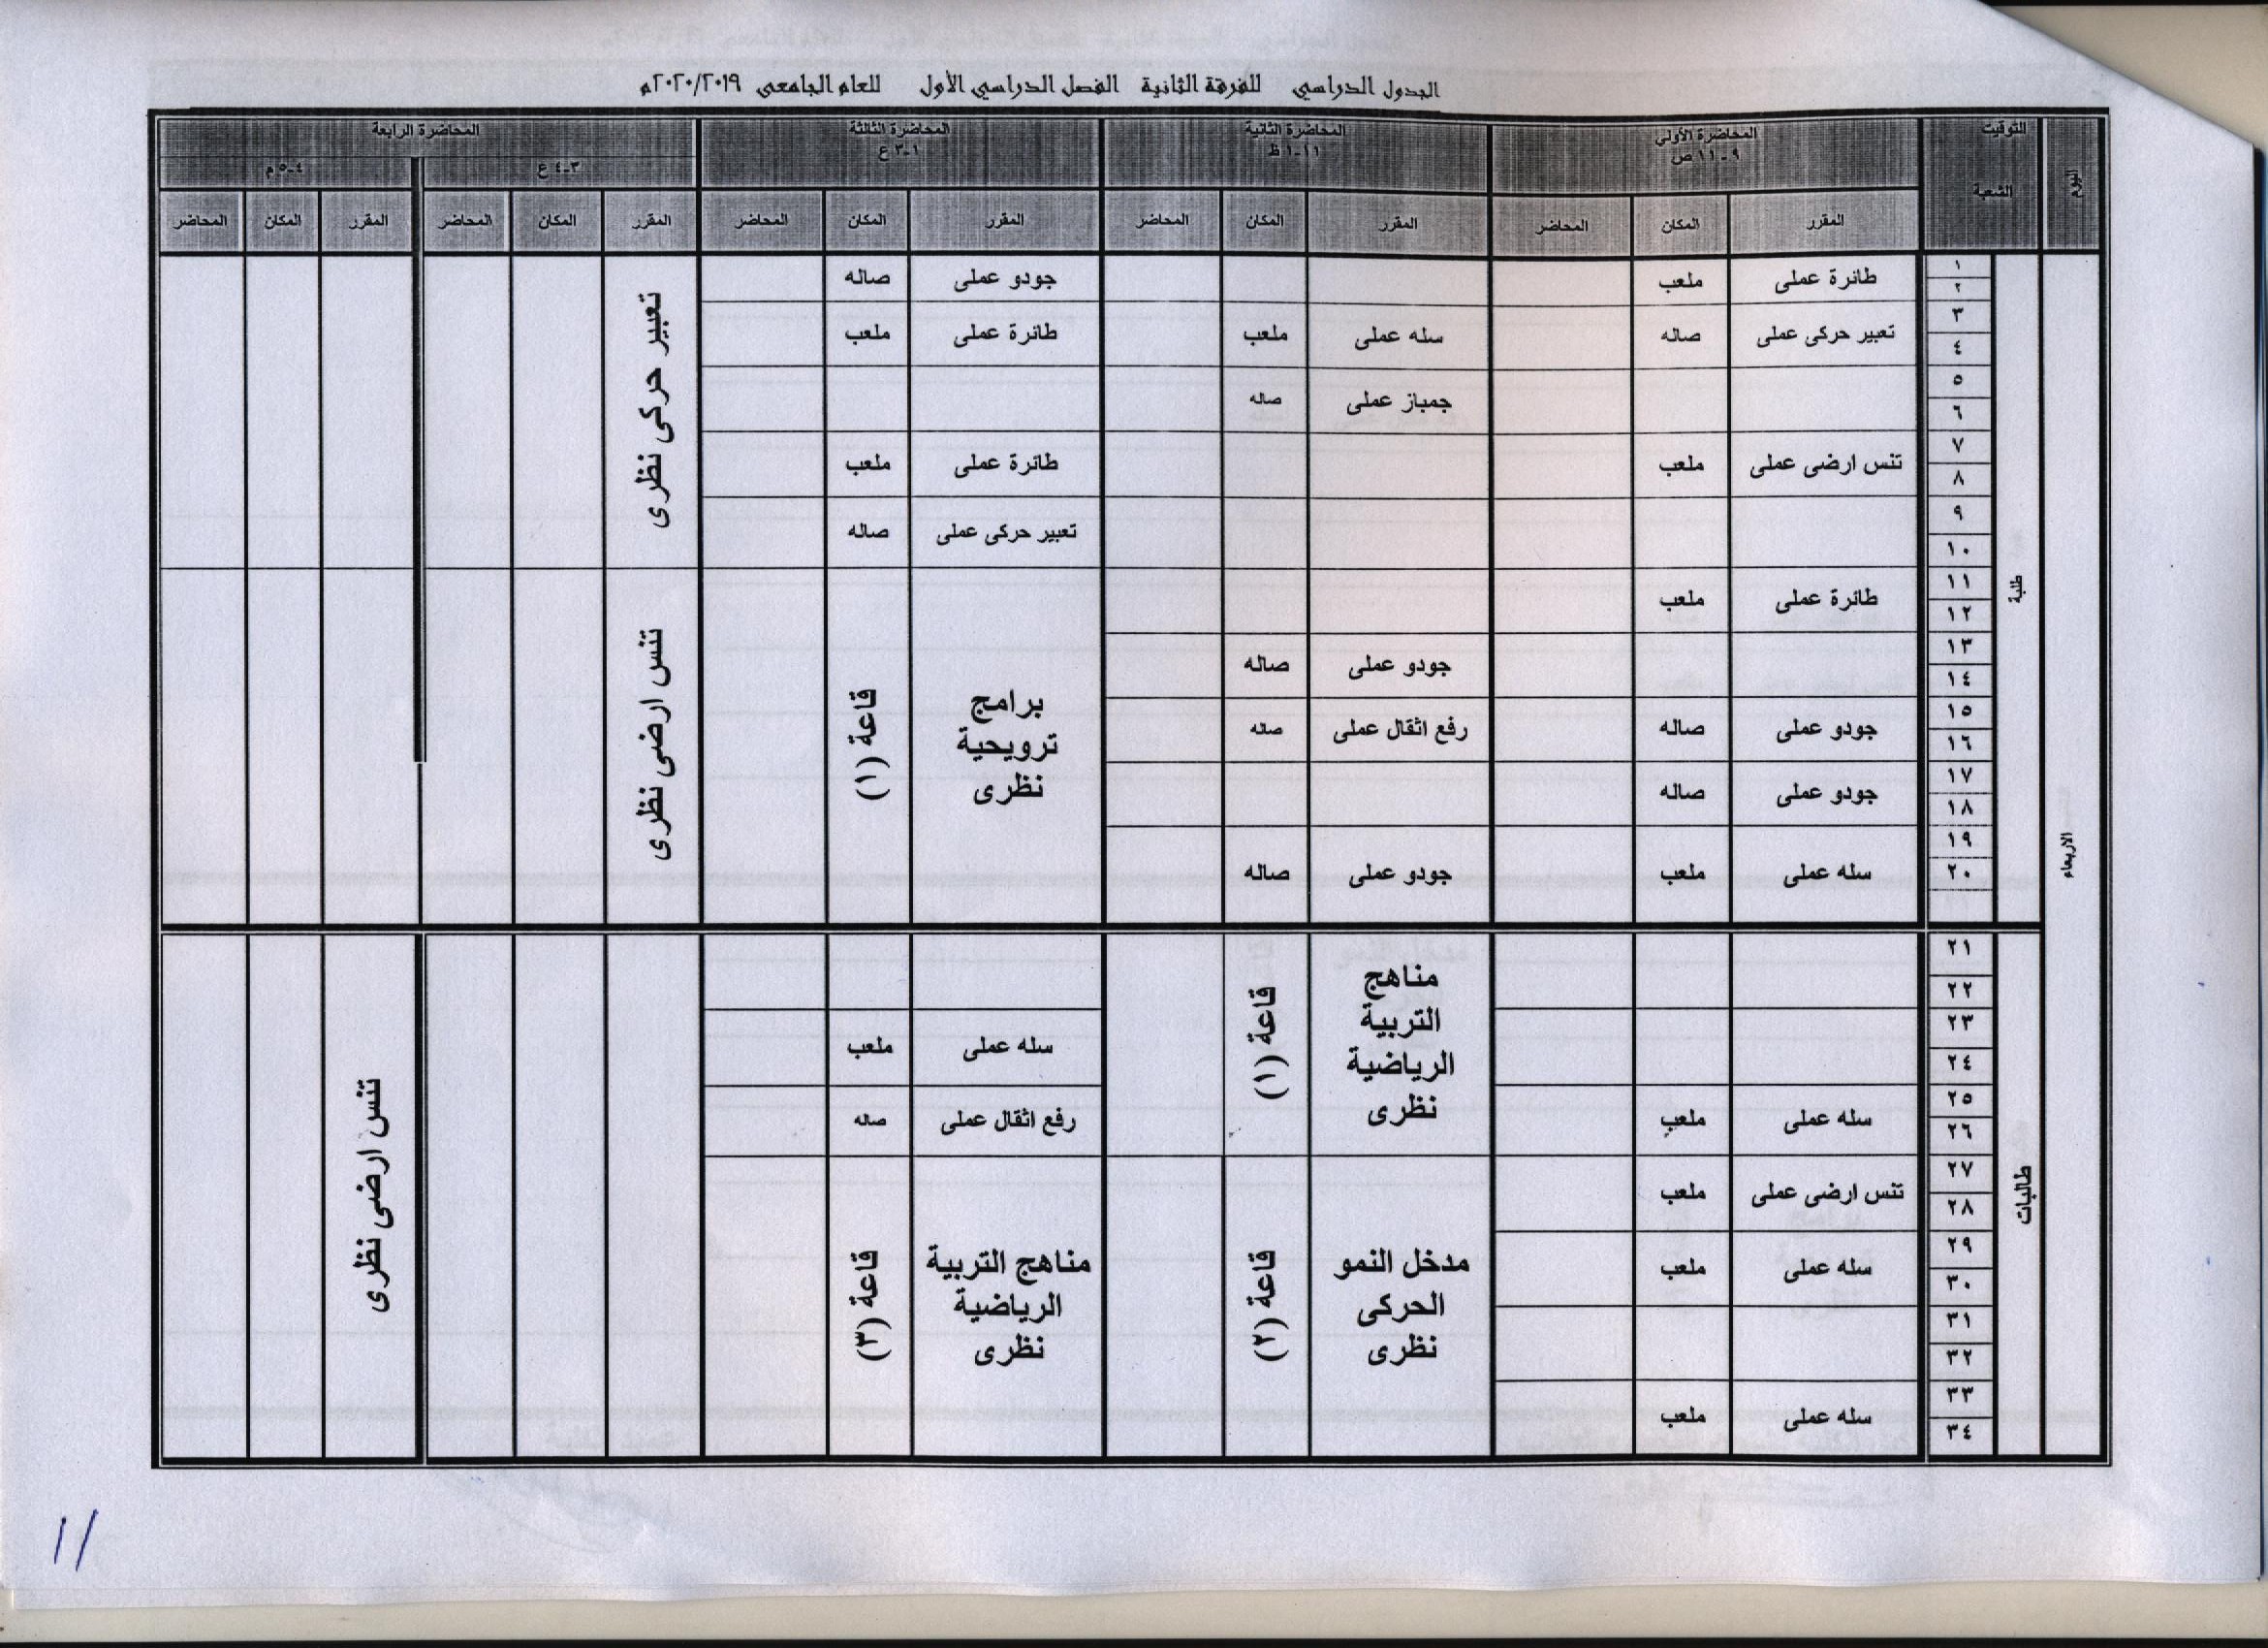 الجدول الدراسي للفرقة الثانية الفصل الدراسي الأول للعام الجامعى ٢٠٢٠/٢٠١٩م
اليوم التوقيت المحاضرة الأولى المحاضرة الثانية المحاضرة الثالثة المحاضرة الرابعة
٩-١١ ص ١١-١ ظ ١-٣ ع ٣-٤ ع ٤-٥ م
الشعبة
المقرر المكان المحاضر المقرر المكان المحاضر المقرر المكان المحاضر المقرر المكان المحاضر المقرر المكان المحاضر
الاربعاء
طلبة
١ ٢ طائرة عملى ملعب جودو عملى صاله
تعبير حركى نظرى
٣ ٤ تعبير حركى عملى صاله سله عملى ملعب طائرة عملى ملعب
٥ ٦ جمباز عملى صاله
٧ ٨ تنس ارضى عملى ملعب طائرة عملى ملعب
٩ ١٠ تعبير حركى عملى صاله
١١ ١٢ طائرة عملى ملعب
برامج ترويحية نظرى قاعة (١)
تنس ارضى نظرى
١٣ ١٤ جودو عملى صاله
١٥ ١٦ جودو عملى صاله رفع اثقال عملى صاله
١٧ ١٨ جودو عملى صاله
١٩ ٢٠ سله عملى ملعب جودو عملى صاله
طالبات
٢١ ٢٢
مناهج التربية الرياضية نظرى قاعة (١)
تنس ارضى نظرى
٢٣ ٢٤ سله عملى ملعب
٢٥ ٢٦ سله عملى ملعب رفع اثقال عملى صاله
٢٧ ٢٨ تنس ارضى عملى ملعب
مدخل النمو الحركى نظرى قاعة (٢)
مناهج التربية الرياضية نظرى قاعة (٣)
٢٩ ٣٠ سله عملى ملعب
٣١ ٣٢
٣٣ ٣٤ سله عملى ملعب
١١